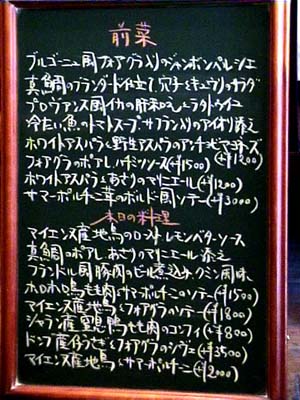 前菜
ブルゴーニュ風フォアグラ入りのジャンボンペルシェ
真鯛のブランダード仕立て 穴子ときゅうりのサラダ
プロヴァンス風イカの肝和えとラタトゥイユ
冷たい魚のトマトスープ サフラン入りのアイオリ添え
ホワイトアスパラと野生アスパラのアンチョビマヨネーズ
フォアグラのポアレ ハチミツソース(+¥1500) (+¥1200)
ホワイトアスパラとあさりのマリニエール(+¥1200)
サマーポルチーニ茸のボルドー風ソテー(+¥3000)
本日の料理
マイエンヌ産地鳥のロースト レモンバターソース
真鯛のポアレ あさりのマリニエール添え
フランドル風豚肉のビール煮込み クミン風味
ホロホロ鳥もも肉とサマーポルチーニのソテー(+¥1500)
マイエンヌ産地鳥とフォアグラのソテー(+¥1800)
シャラン産窒息鴨もも肉のコンフィ(+¥800)
ドンブ産仔うさぎとフォアグラのシヴェ(+¥3500)
マイエンヌ産地鳥とサマーポルチーニ(+¥2000)